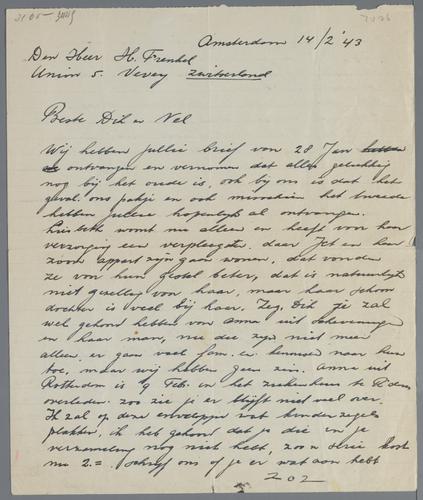 Amsterdam 14/2 '43
Den Heer H. Frenkel
Union 5. Vevey Zwitserland
Beste Dik en Nel
Wij hebben jullie brief van 28 Jan
ontvangen en vernomen dat alles gelukkig
nog bij het oude is, ook bij ons is dat het
geval. ons pakje en ook misschien het tweede
hebben jullie hopenlijk al ontvangen.
woont nu alleen en heeft voor haar
verzorging een verpleegster. daar Jet en haar
zoon appart zijn gaan wonen, dat vonden
ze voor hun gestel beter, dat is natuurlijk
niet gezellig voor haar, maar haar schoon
dochter is veel bij haar. Zeg, Dik je zal
wel gehoord hebben van Anna uit Scheveningen
en haar man, nu die zijn niet meer
alleen. er gaan veel fam. en kennissen naar hun
toe, maar wij hebben geen zin. Anna uit
Rotterdam is 9 Feb. in het ziekenhuis te
overleden. zoo zie je er blijft niet veel over.
Ik zal op deze enveloppe wat kinderzegels
plakken, ik heb gehoord dat je die in je
verzameling nog niet hebt, zoo'n serie kost
nu 2.=. schrijf ons of je er wat aan hebt